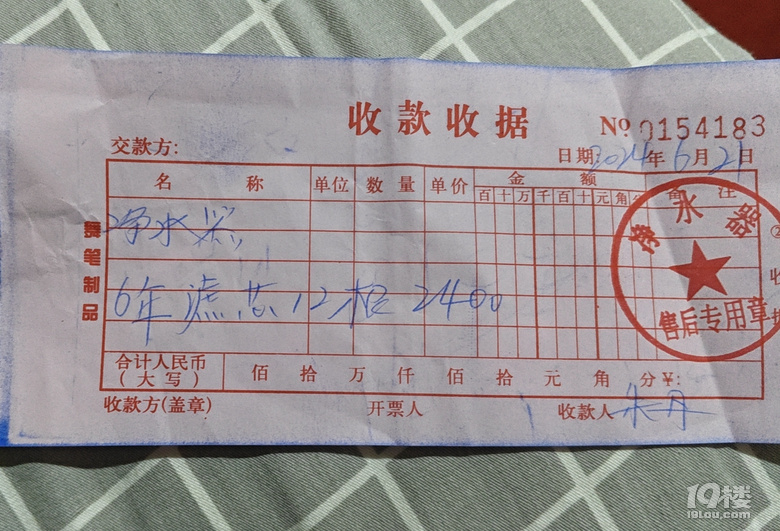 收款收据 Nº 0154183
交款方: 日期: 2024年6月21日
名称 单位 数量 单价 金额 备注
百十万千百十元角分
净水器
6年滤芯12根 2400
合计人民币(大写) 佰 拾 万 仟 佰 拾 元 角 分 ¥:
收款方(盖章) 开票人 收款人 朱丹
制品
净水器
售后专用章
19楼
19lou.com